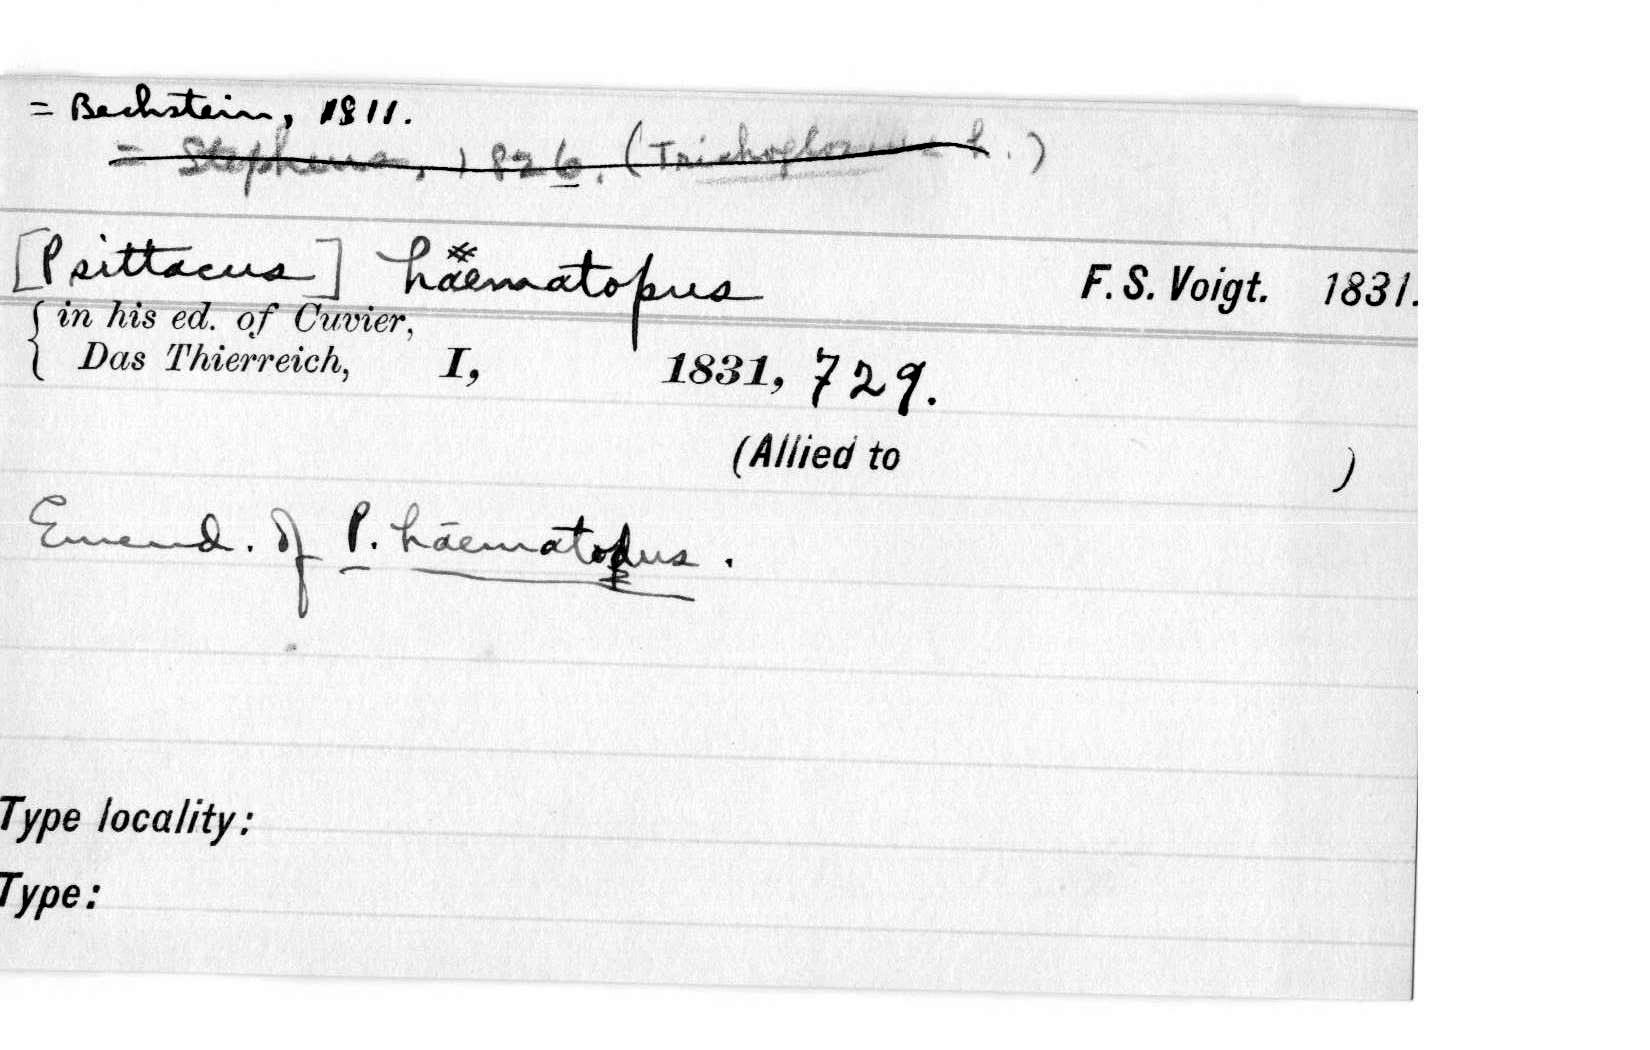 = Bechstein, 1811.
= Stephens, 1826. (Trichoglossus h.)
[Psittacus] hæmatopus F. S. Voigt. 1831.
{ in his ed. of Cuvier,
Das Thierreich, I, 1831, 729.
(Allied to )
Emend. of P. hæmatodus.
Type locality:
Type: